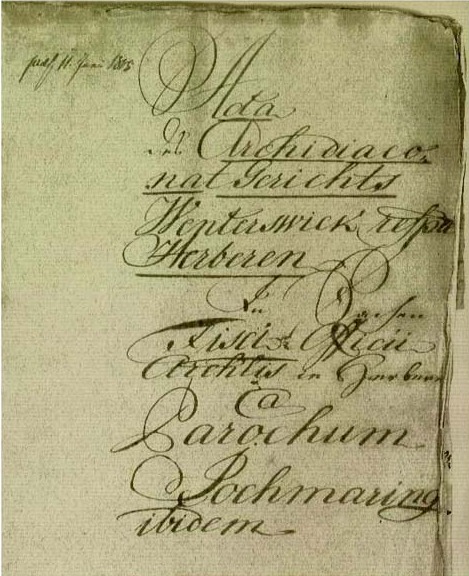 praes. 11. Juni 1805
Acta
des Archidiaco-
nat Gerichts
Wenterswick respve
Herberen
In Sachen
Fisci & Officii
Archtis in Herbern
Ca
Parochum
Pochmaring
ibidem